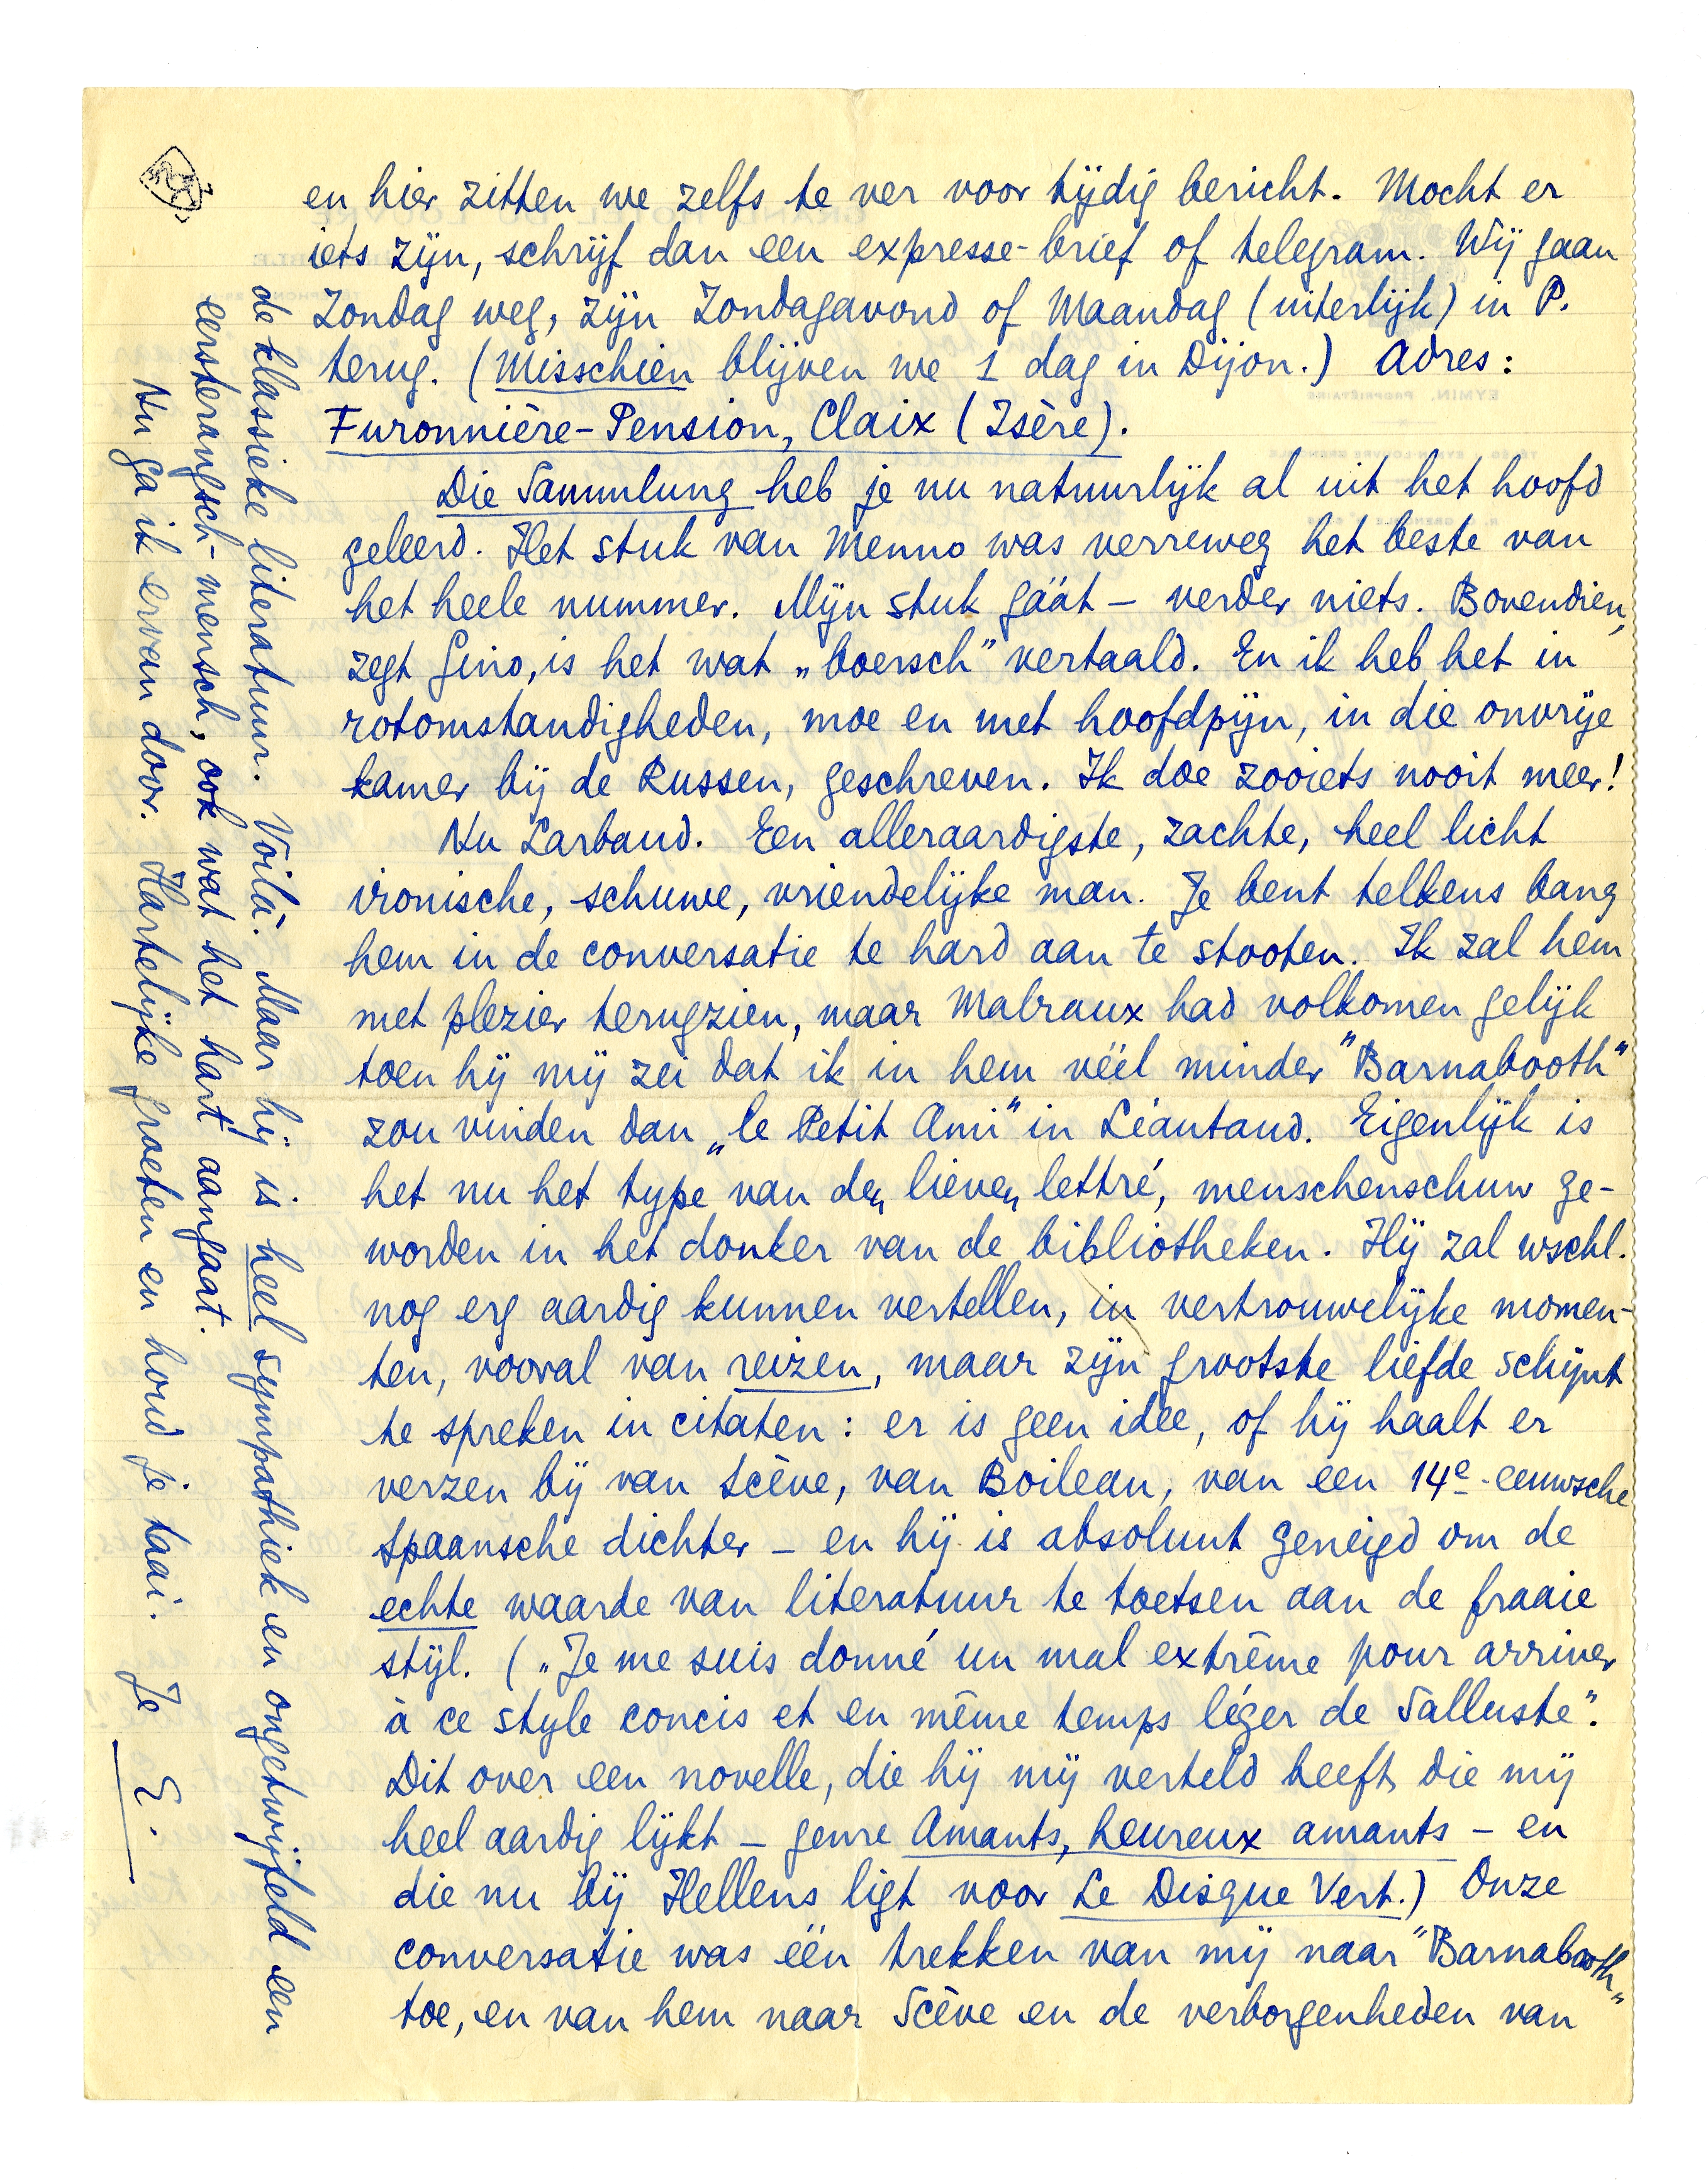 en hier zitten we zelfs te ver voor tijdig bericht. Mocht er
iets zijn, schrijf dan een expresse-brief of telegram. Wij gaan
Zondag weg, zijn Zondagavond of Maandag (uiterlijk) in P.
terug. (Misschien blijven we 1 dag in Dijon.) Adres:
Furonnière-Pension, Claix (Isère).
Die Sammlung heb je nu natuurlijk al uit het hoofd
geleerd. Het stuk van Menno was verreweg het beste van
het heele nummer. Mijn stuk gáát – verder niets. Bovendien,
zegt Gino, is het wat „boersch" vertaald. En ik heb het in
rotomstandigheden, moe en met hoofdpijn, in die onvrije
kamer bij de Russen, geschreven. Ik doe zooiets nooit meer!
Nu Larbaud. Een alleraardigste, zachte, heel licht
ironische, schuwe, vriendelijke man. Je bent telkens bang
hem in de conversatie te hard aan te stooten. Ik zal hem
met plezier terugzien, maar Malraux had volkomen gelijk
toen hij mij zei dat ik in hem véél minder "Barnabooth"
zou vinden dan „le Petit Ami" in Léautaud. Eigenlijk is
het nu het type van den lieven lettré, menschenschuw ge-
worden in het donker van de bibliotheken. Hij zal wschl.
nog erg aardig kunnen vertellen, in vertrouwelijke momen-
ten, vooral van reizen, maar zijn grootste liefde schijnt
te spreken in citaten: er is geen idee, of hij haalt er
verzen bij van Scève, van Boileau, van een 14e-eeuwsche
Spaansche dichter – en hij is absoluut geneigd om de
echte waarde van literatuur te toetsen aan de fraaie
stijl. („Je me suis donné un mal extrême pour arriver
à ce style concis et en même temps léger de Salluste".
Dit over een novelle, die hij mij verteld heeft, die mij
heel aardig lijkt – genre Amants, heureux amants – en
die nu bij Hellens ligt voor Le Disque Vert.) Onze
conversatie was één trekken van mij naar "Barnabooth"
toe, en van hem naar Scève en de verborgenheden van
de klassieke literatuur. Voilà. Maar hij is heel sympathiek en ongetwijfeld een
eersterangsch-mensch, ook wat het hart aangaat.
Nu ga ik ervan door. Hartelijke groeten en houd je taai. Je E.